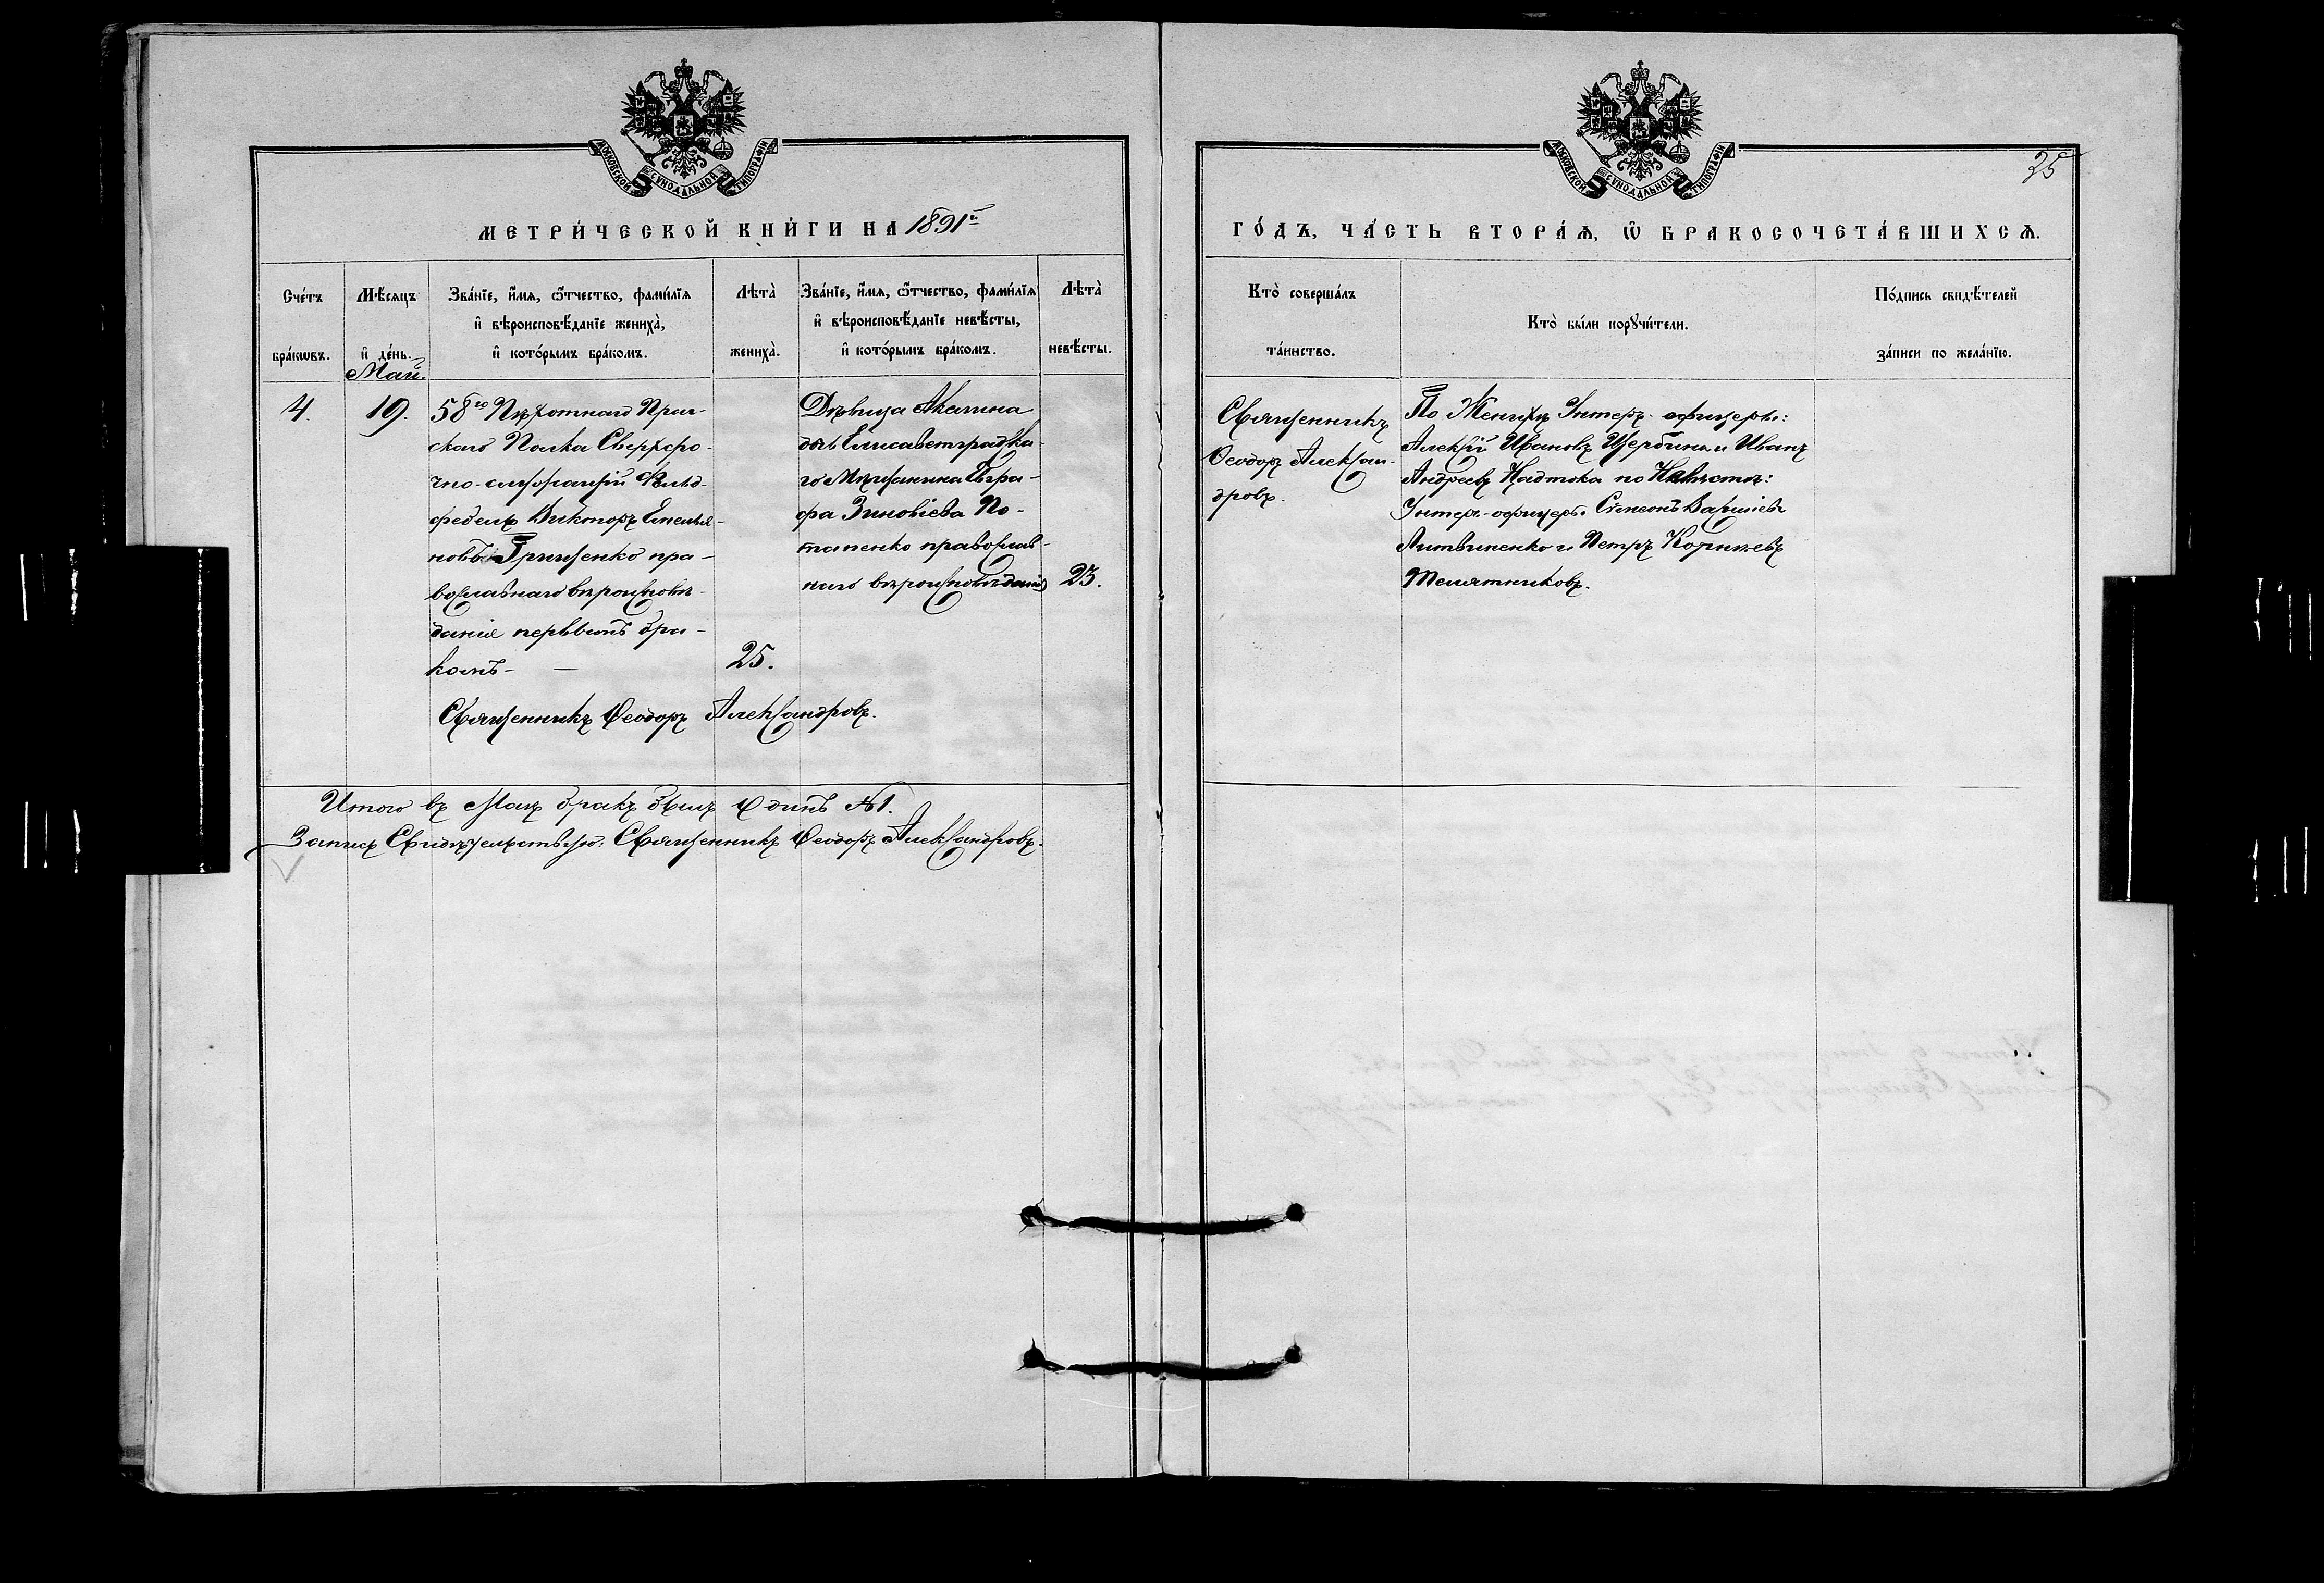 МОСКОВСКОЙ СѴНОДАЛЬНОЙ ТИПОГРАФІИ
МЕТРИ́ЧЕСКОЙ КНИ́ГИ НА 1891 г.
Сче́тъ бра́кѡвъ.
Мѣ́сяцъ и҆ де́нь.
Зва́нїе, и҆́мѧ, ѻ҆́тчество, фами́лїѧ
и҆ вѣроисповѣ́данїе жениха̀,
и҆ кото́рымъ бра́комъ.
Лѣта̀ жениха̀.
Зва́нїе, и҆́мѧ, ѻ҆́тчество, фами́лїѧ
и҆ вѣроисповѣ́данїе невѣ́сты,
и҆ кото́рымъ бра́комъ.
Лѣта̀ невѣ́сты.
Май.
4.
19.
58го Пѣхотнаго Праг-
скаго Полка Сверхсро-
чно-служащій Фельд-
фебель Викторъ Емелья-
новъ Грищенко пра-
вославнаго вѣроисповѣ-
данія первымъ бра-
комъ-
25.
Дѣвица Акилина
дочь Елисаветградска-
го Мѣщанина Евгра-
фа Зиновіева По-
тапенко православ-
наго вѣроисповѣданія
23.
Священникъ Ѳеодоръ Александровъ.
Итого въ Маѣ бракъ былъ Одинъ №1.
Запись Свидѣтельствую: Священникъ Ѳеодоръ Александровъ.
МОСКОВСКОЙ СѴНОДАЛЬНОЙ ТИПОГРАФІИ
25
ГО́ДЪ, ЧА́СТЬ ВТОРА́Ѧ, Ѡ҆ БРАКОСОЧЕТА́ВШИХСѦ.
Кто̀ соверша́лъ
та́инство.
Кто̀ бы́ли порꙋчи́тели.
По́дпись свидѣ́телей
за́писи по жела́нїю.
Священникъ
Ѳеодоръ Алексан-
дровъ.
По Женихѣ Унтеръ-офицеры:
Алексѣй Ивановъ Щербина и Иванъ
Андреевъ Надтока по Невѣстѣ:
Унтеръ-офицеры Симеонъ Васильевъ
Литвиненко и Петръ
Телятниковъ.